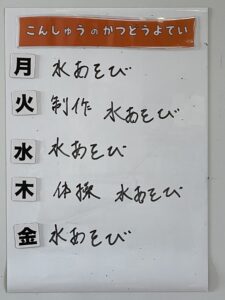 こんしゅうのかつどうよてい
月 水あそび
火 制作 水あそび
水 水あそび
木 体操 水あそび
金 水あそび